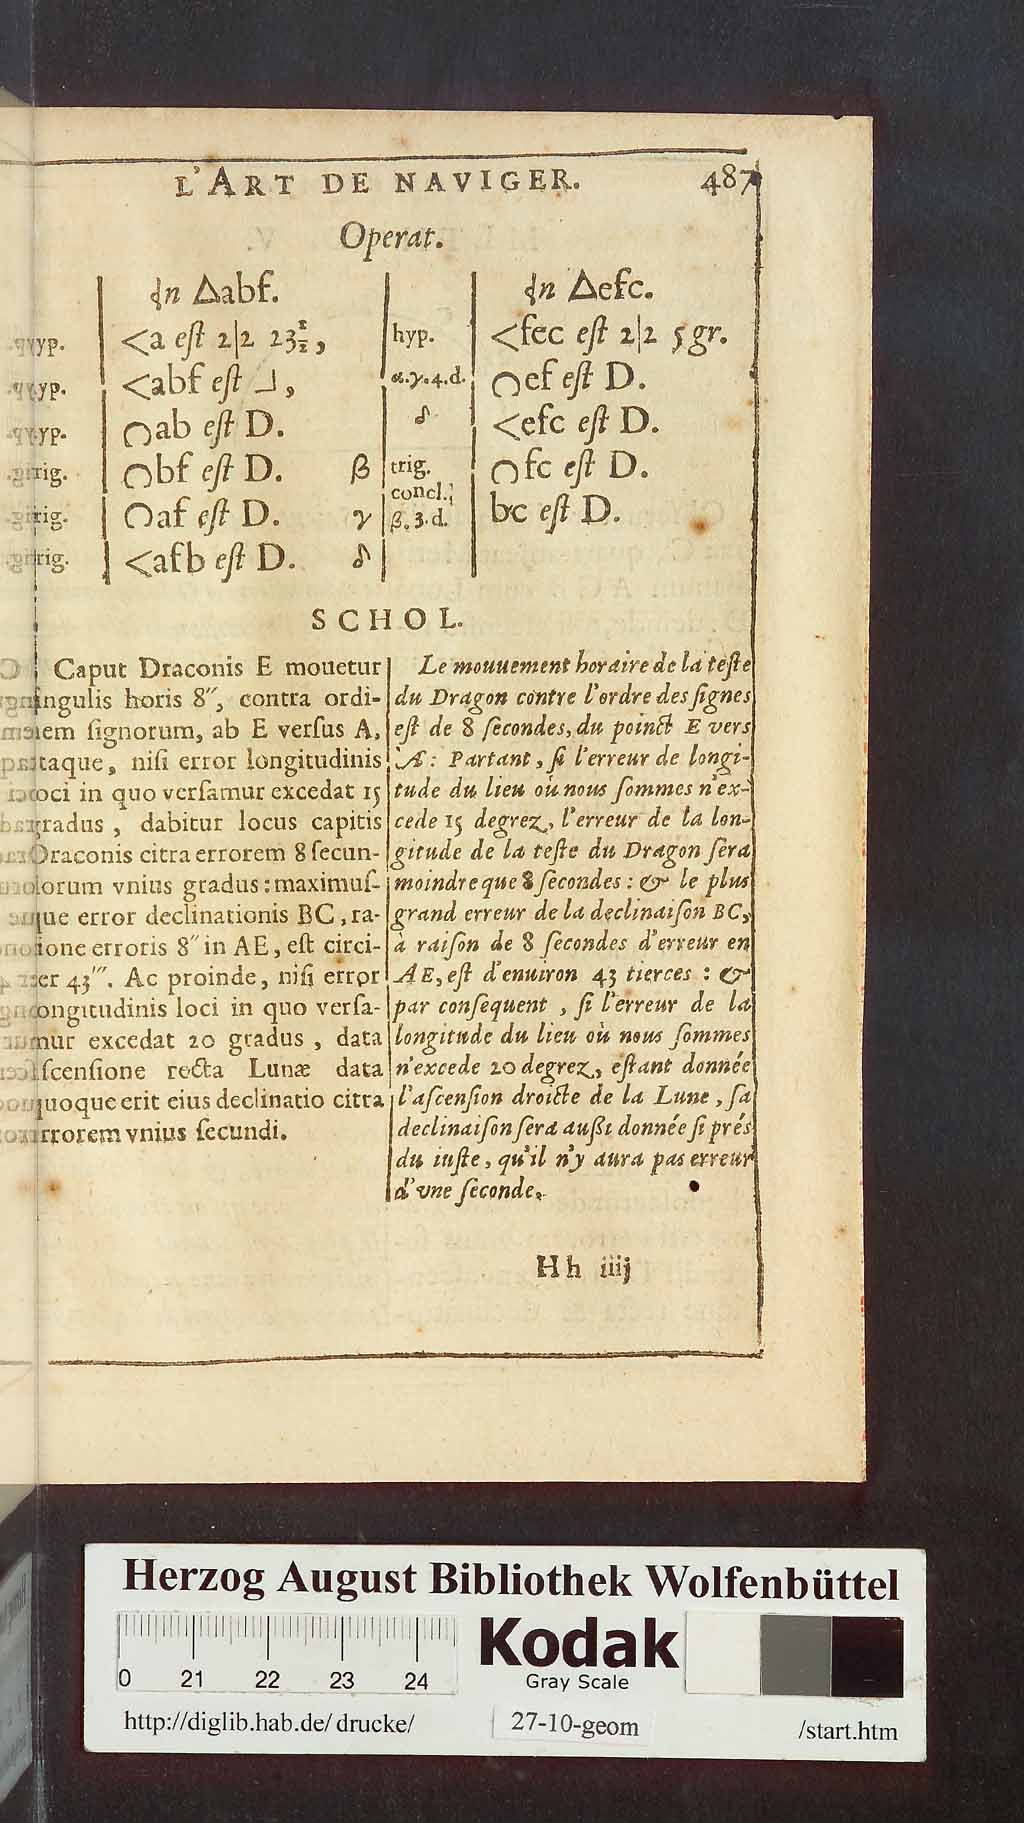 L'ART DE NAVIGER. 487
Operat.
In △abf.
hyp. <a est 2|2 23½,
hyp. <abf est ⅃,
hyp. ◠ab est D.
trig. ◠bf est D. β
trig. ◠af est D. γ
trig. <afb est D. δ
In △efc.
hyp. <fec est 2|2 5 gr.
α.γ.4.d. ◠ef est D.
δ <efc est D.
trig. ◠fc est D.
concl.
β.3.d. bc est D.
SCHOL.
Caput Draconis E mouetur
ſingulis horis 8″, contra ordi-
nem ſignorum, ab E verſus A,
itaque, niſi error longitudinis
loci in quo verſamur excedat 15
gradus, dabitur locus capitis
Draconis citra errorem 8 ſecun-
dorum vnius gradus: maximuſ-
que error declinationis BC, ra-
tione erroris 8″ in AE, eſt circi-
ter 43‴. Ac proinde, niſi error
longitudinis loci in quo verſa-
mur excedat 20 gradus, data
aſcenſione recta Lunæ data
quoque erit eius declinatio citra
errorem vnius ſecundi.
Le mouuement horaire de la teſte
du Dragon contre l'ordre des ſignes
eſt de 8 ſecondes, du poinct E vers
A: Partant, ſi l'erreur de longi-
tude du lieu où nous ſommes n'ex-
cede 15 degrez, l'erreur de la lon-
gitude de la teſte du Dragon ſera
moindre que 8 ſecondes: & le plus
grand erreur de la declinaiſon BC,
à raiſon de 8 ſecondes d'erreur en
AE, eſt d'enuiron 43 tierces: &
par conſequent, ſi l'erreur de la
longitude du lieu où nous ſommes
n'excede 20 degrez, eſtant donnée
l'aſcenſion droicte de la Lune, ſa
declinaiſon ſera auſſi donnée ſi prés
du iuſte, qu'il n'y aura pas erreur
d'vne ſeconde.
Hh iiij
Herzog August Bibliothek Wolfenbüttel
0 21 22 23 24
Kodak
Gray Scale
http://diglib.hab.de/drucke/ 27-10-geom /start.htm